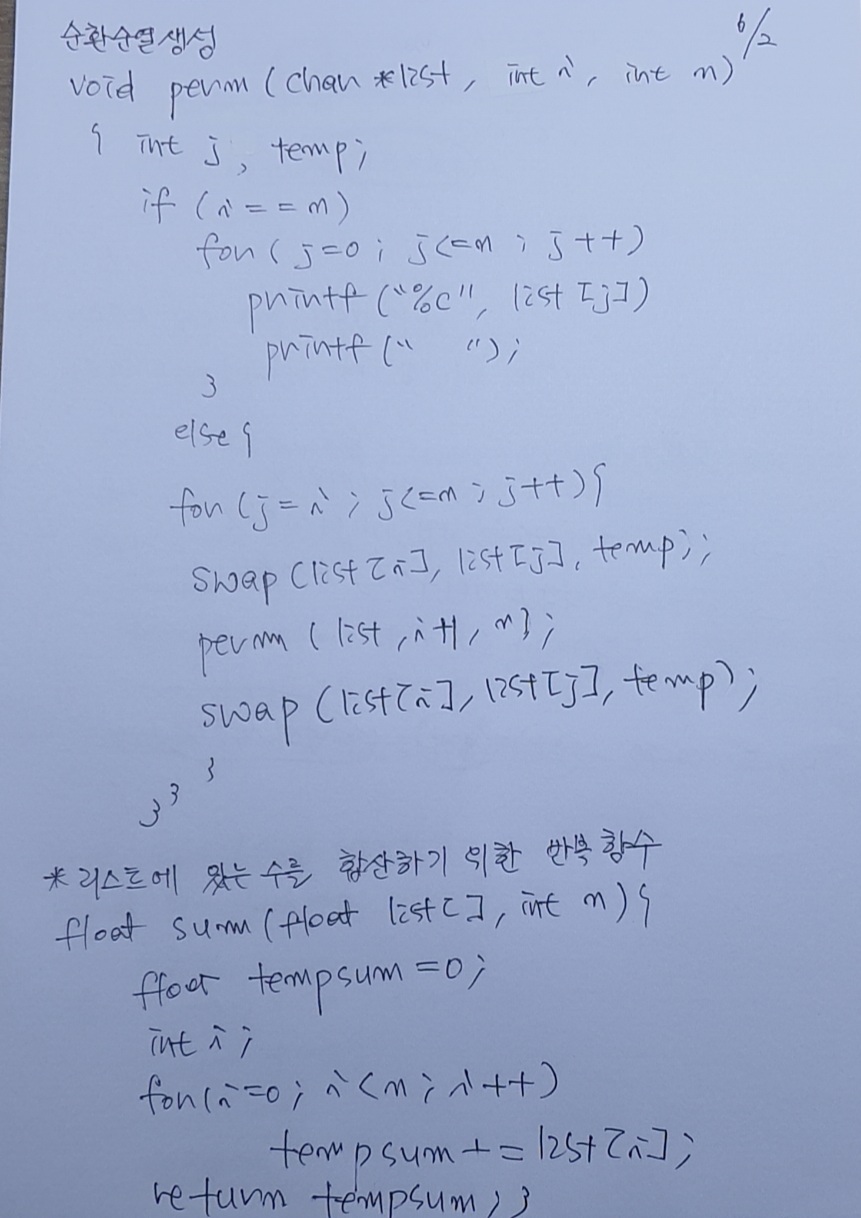 순환순열생성
6/2
void perm (char *list, int i, int n)
{ int j, temp;
if (i == n)
for (j=0; j<=n; j++)
printf("%c", list[j])
printf("  ");
}
else {
for (j=i; j<=n; j++) {
swap (list[i], list[j], temp);
perm (list, i+1, n);
swap (list[i], list[j], temp);
}
}}
* 리스트에 있는 수를 합산하기 위한 반복 함수
float sum (float list[], int n) {
float tempsum = 0;
int i;
for (i=0; i<n; i++)
tempsum += list[i];
return tempsum; }